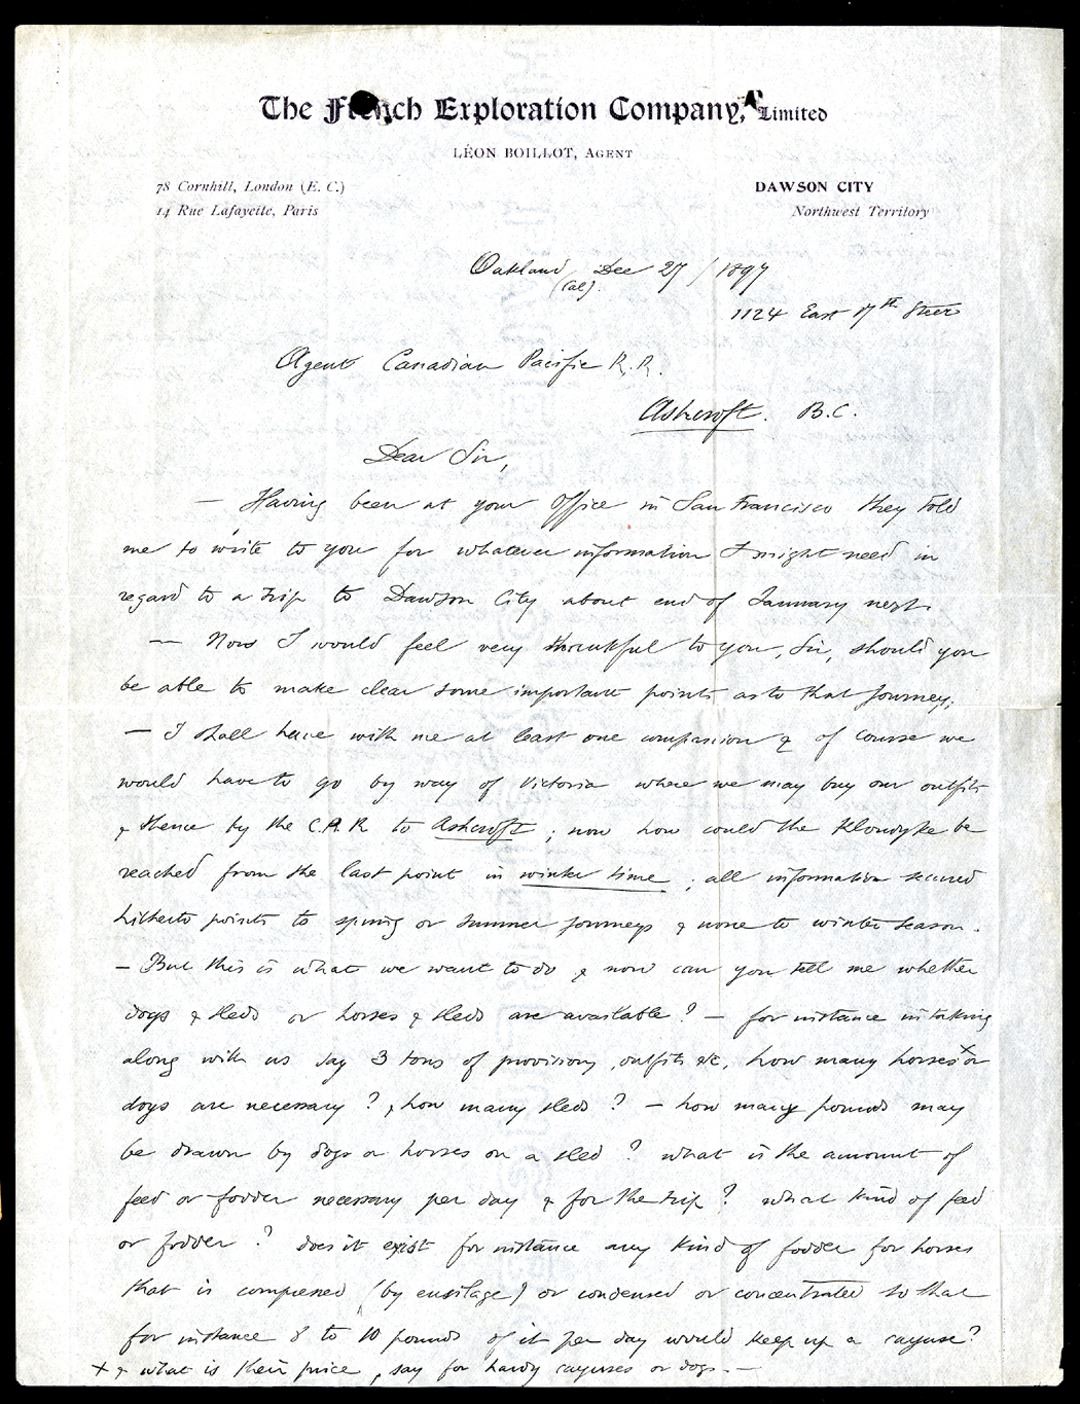 The French Exploration Company, Limited
LÉON BOILLOT, AGENT
78 Cornhill, London (E. C.)
14 Rue Lafayette, Paris
DAWSON CITY
Northwest Territory
Oakland Dec 27 / 1897
(Cal).
1124 East 17th Street
Agent Canadian Pacific R. R.
Ashcroft. B.C.
Dear Sir,
— Having been at your Office in San Francisco they told
me to write to you for whatever information I might need in
regard to a trip to Dawson City about end of January next.
— Now I would feel very thankful to you, Sir, should you
be able to make clear some important points as to that journey.
— I shall have with me at least one companion & of course we
would have to go by way of Victoria where we may buy our outfits
& thence by the C.P.R to Ashcroft ; now how could the Klondyke be
reached from the last point in winter time ; all information secured
hitherto points to spring or summer journeys & none to winter season.
— But this is what we want to do & now can you tell me whether
dogs & sleds or horses & sleds are available ? — for instance in taking
along with us say 3 tons of provisions, outfits &c, how many horses x or
dogs are necessary ? & how many sleds ? — how many pounds may
be drawn by dogs or horses on a sled ? what is the amount of
feed or fodder necessary per day & for the trip ? what kind of feed
or fodder ? does it exist for instance any kind of fodder for horses
that is compressed (by ensilage) or condensed or concentrated so that
for instance 8 to 10 pounds of it per day would keep up a cayuse?
x & what is their price, say for hardy cayuses or dogs. —